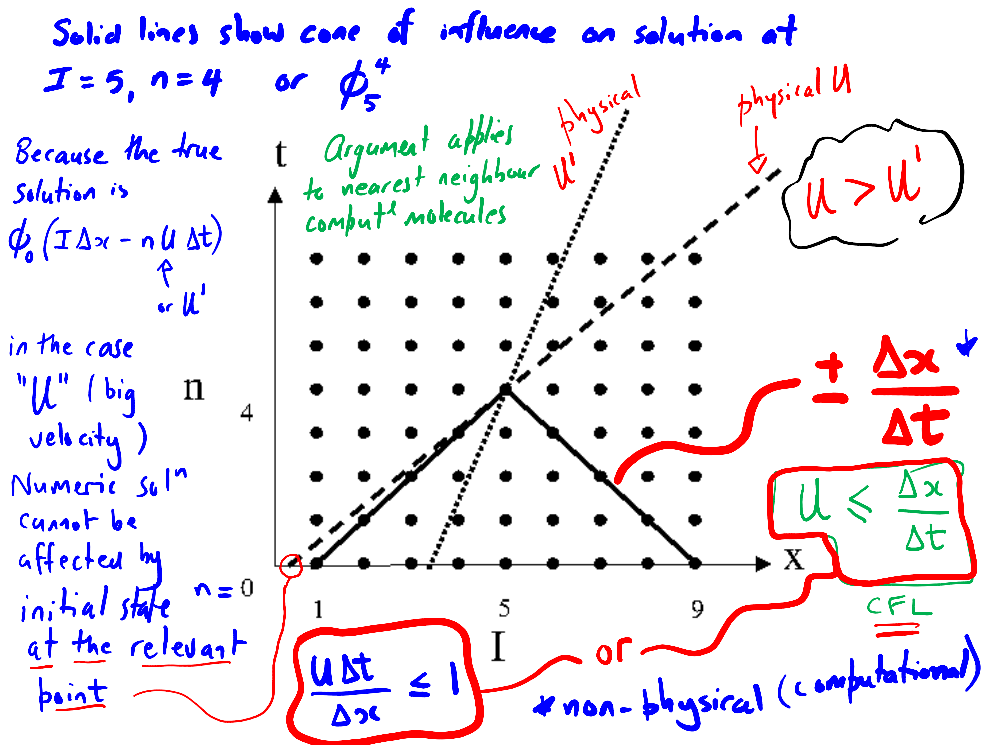 Solid lines show cone of influence on solution at
I = 5, n = 4 or ϕ₅⁴
Because the true
solution is
ϕ₀ (I Δx - n U Δt)
↑
or U'
in the case
"U" (big
velocity)
Numeric solⁿ
cannot be
affected by
initial state
at the relevant
point
Argument applies
to nearest neighbour
computˡ molecules
physical
U'
physical U
U > U'
t
n
4
n = 0
1
5
9
I
x
± Δx/Δt *
U ≤ Δx/Δt
CFL
UΔt/Δx ≤ 1
or
* non-physical (computational)